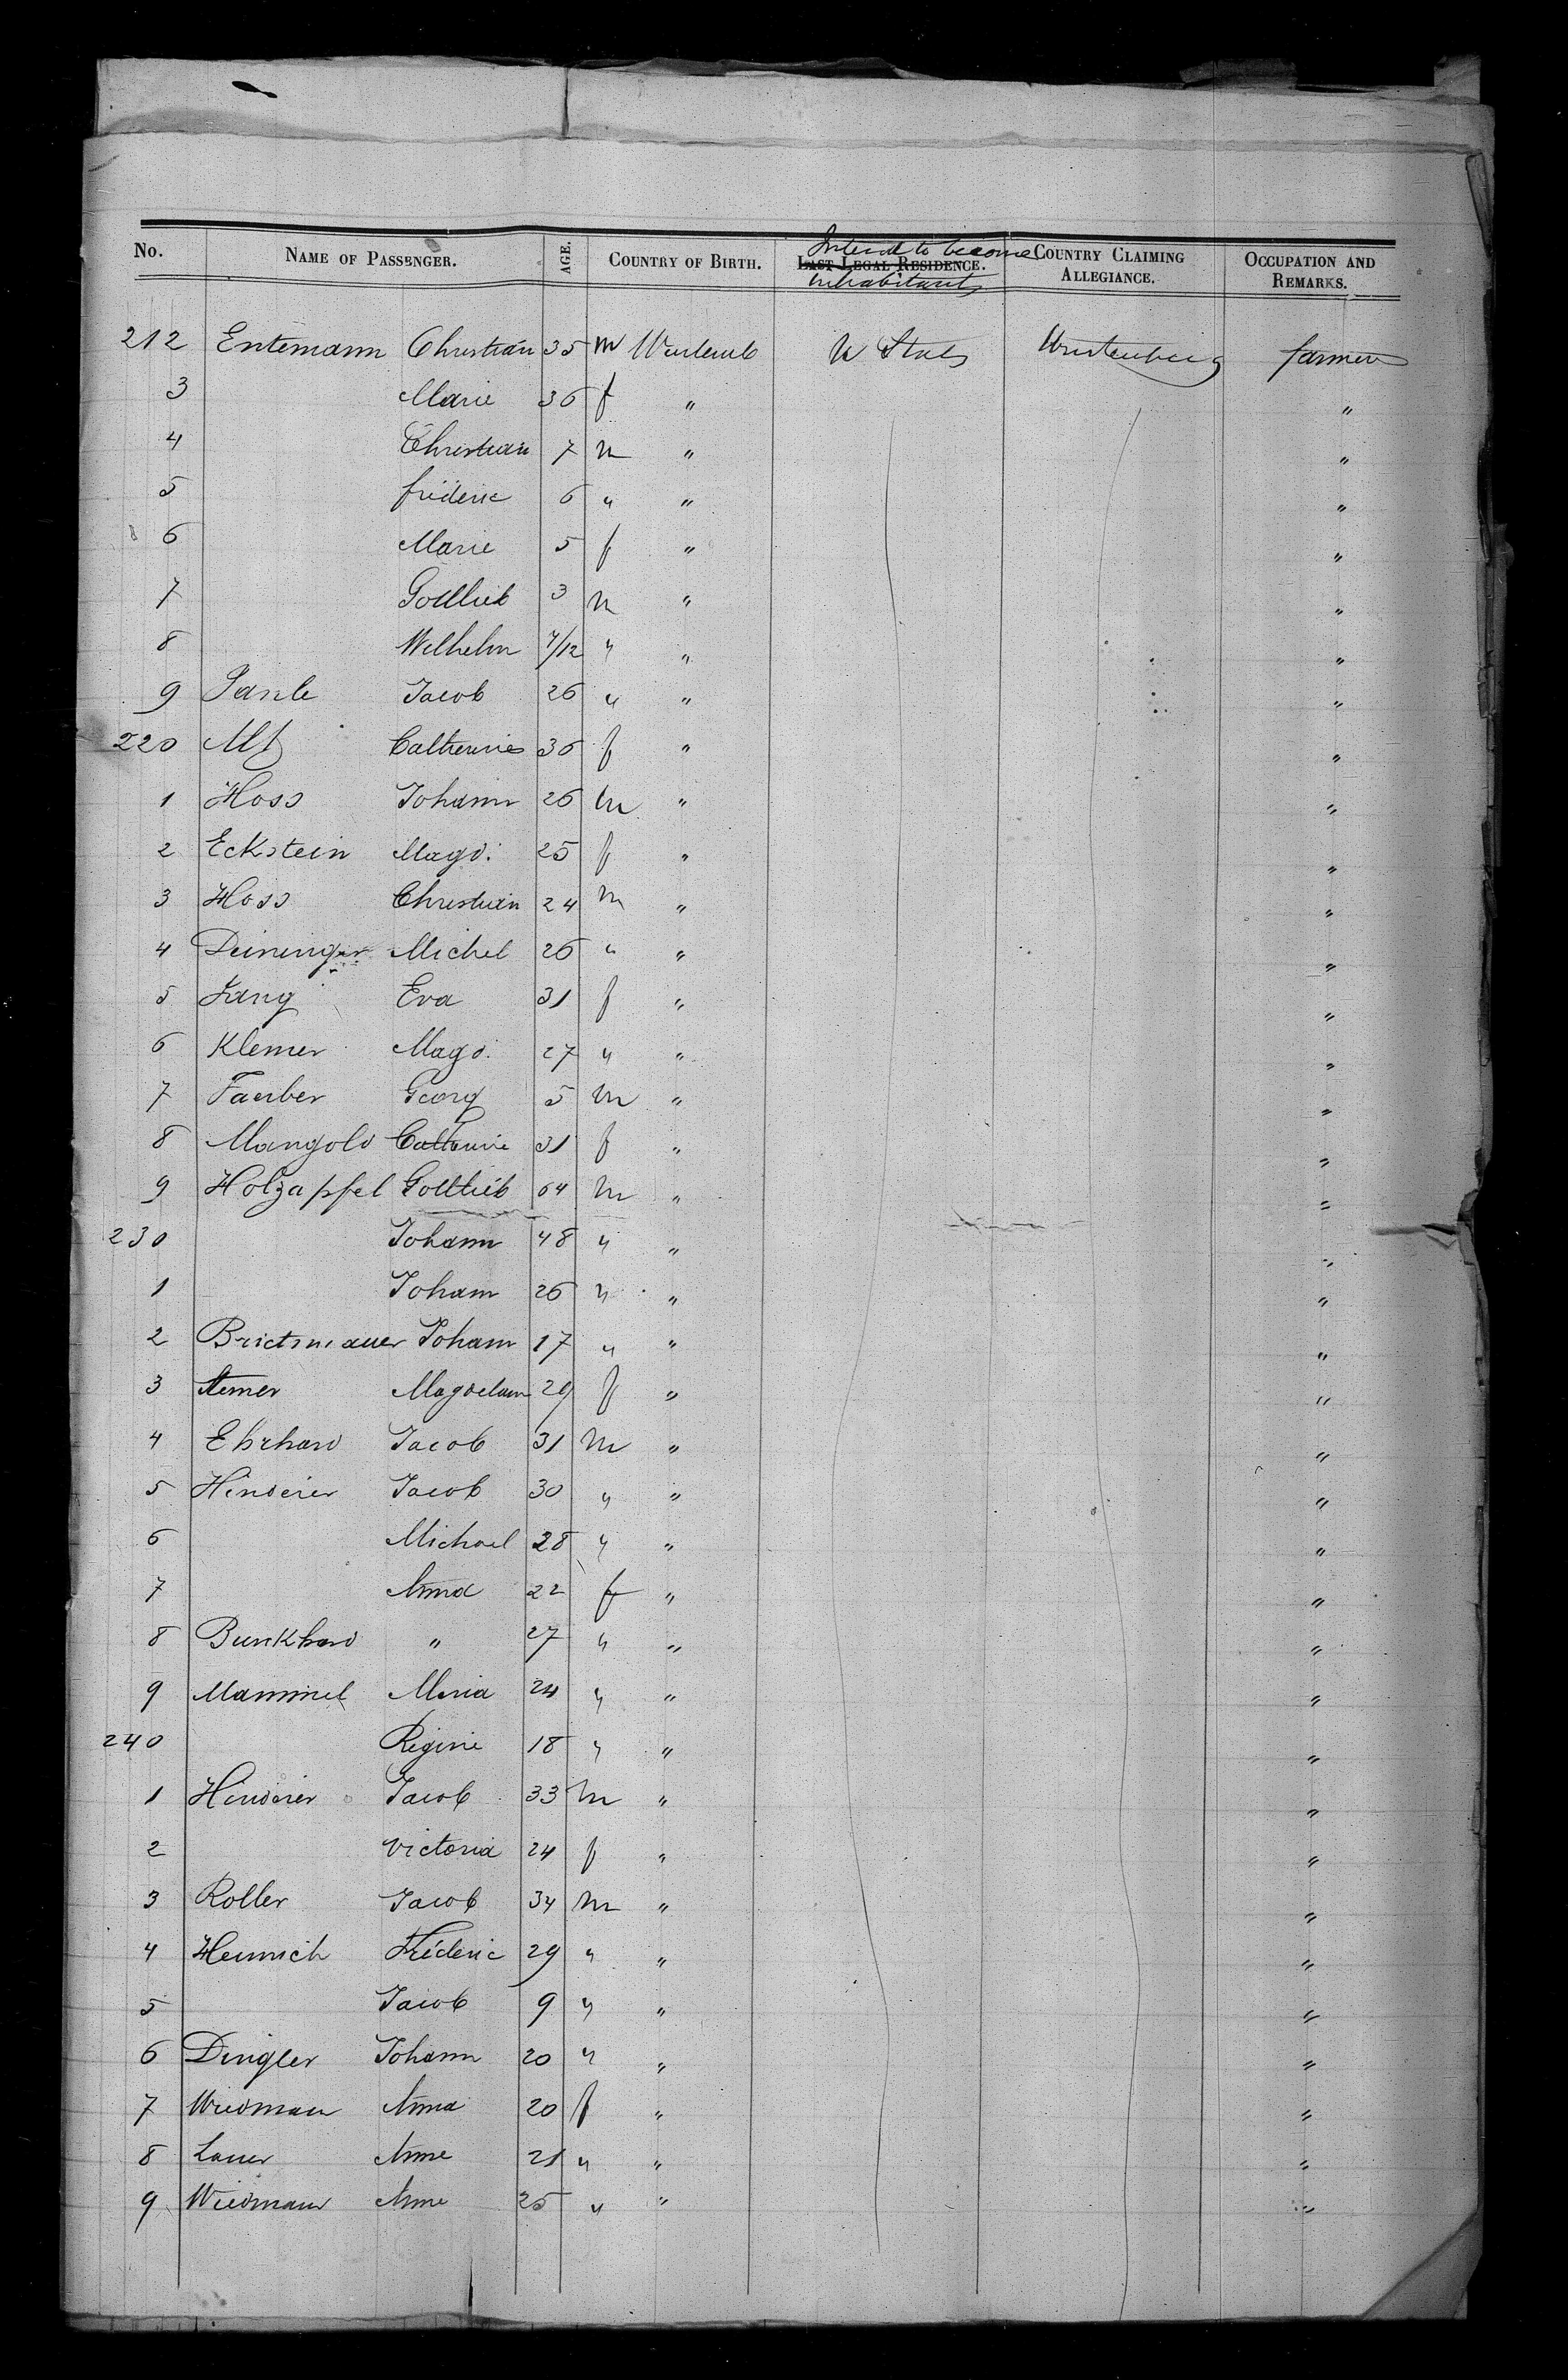 No. NAME OF PASSENGER. AGE. COUNTRY OF BIRTH. LAST LEGAL RESIDENCE. Intend to become inhabitants COUNTRY CLAIMING ALLEGIANCE. OCCUPATION AND REMARKS.
212 Entemann Christian 35 m Wurtemb U States Wurtemberg farmer
3 Marie 36 f " "
4 Christian 7 m " "
5 fréderic 6 " " "
6 Marie 5 f " "
7 Gottlieb 3 m " "
8 Wilhelm /12 " " "
9 Jacob 26 " " "
220 Catherine 36 f " "
1 Hoss Johann 26 m " "
2 Eckstein Magd. 25 f " "
3 Hoss Christian 24 m " "
4 Deininger Michel 26 " " "
5 Lang Eva 31 f " "
6 Klemer Magd. 27 " " "
7 Tauber Georg 5 m " "
8 Mangold Catherine 31 f " "
9 Holzapfel Gottlieb 64 m " "
230 Johann 48 " " "
1 Johann 26 " " "
2 Brictsmauer Johann 17 " " "
3 Magdelane 29 f " "
4 Ehrhard Jacob 31 m " "
5 Hinderer Jacob 30 " " "
6 Michael 28 " " "
7 Anna 22 f " "
8 Burkhard " 27 " " "
9 Mammel Maria 24 " " "
240 Regine 18 " " "
1 Hinderer Jacob 33 m " "
2 Victoria 24 f " "
3 Roller Jacob 34 m " "
4 Heinrich Fréderic 29 " " "
5 Jacob 9 " " "
6 Dingler Johann 20 " " "
7 Wiedman Anna 20 f " "
8 Lauer Anne 21 " " "
9 Wiedmann Anne 25 " " "